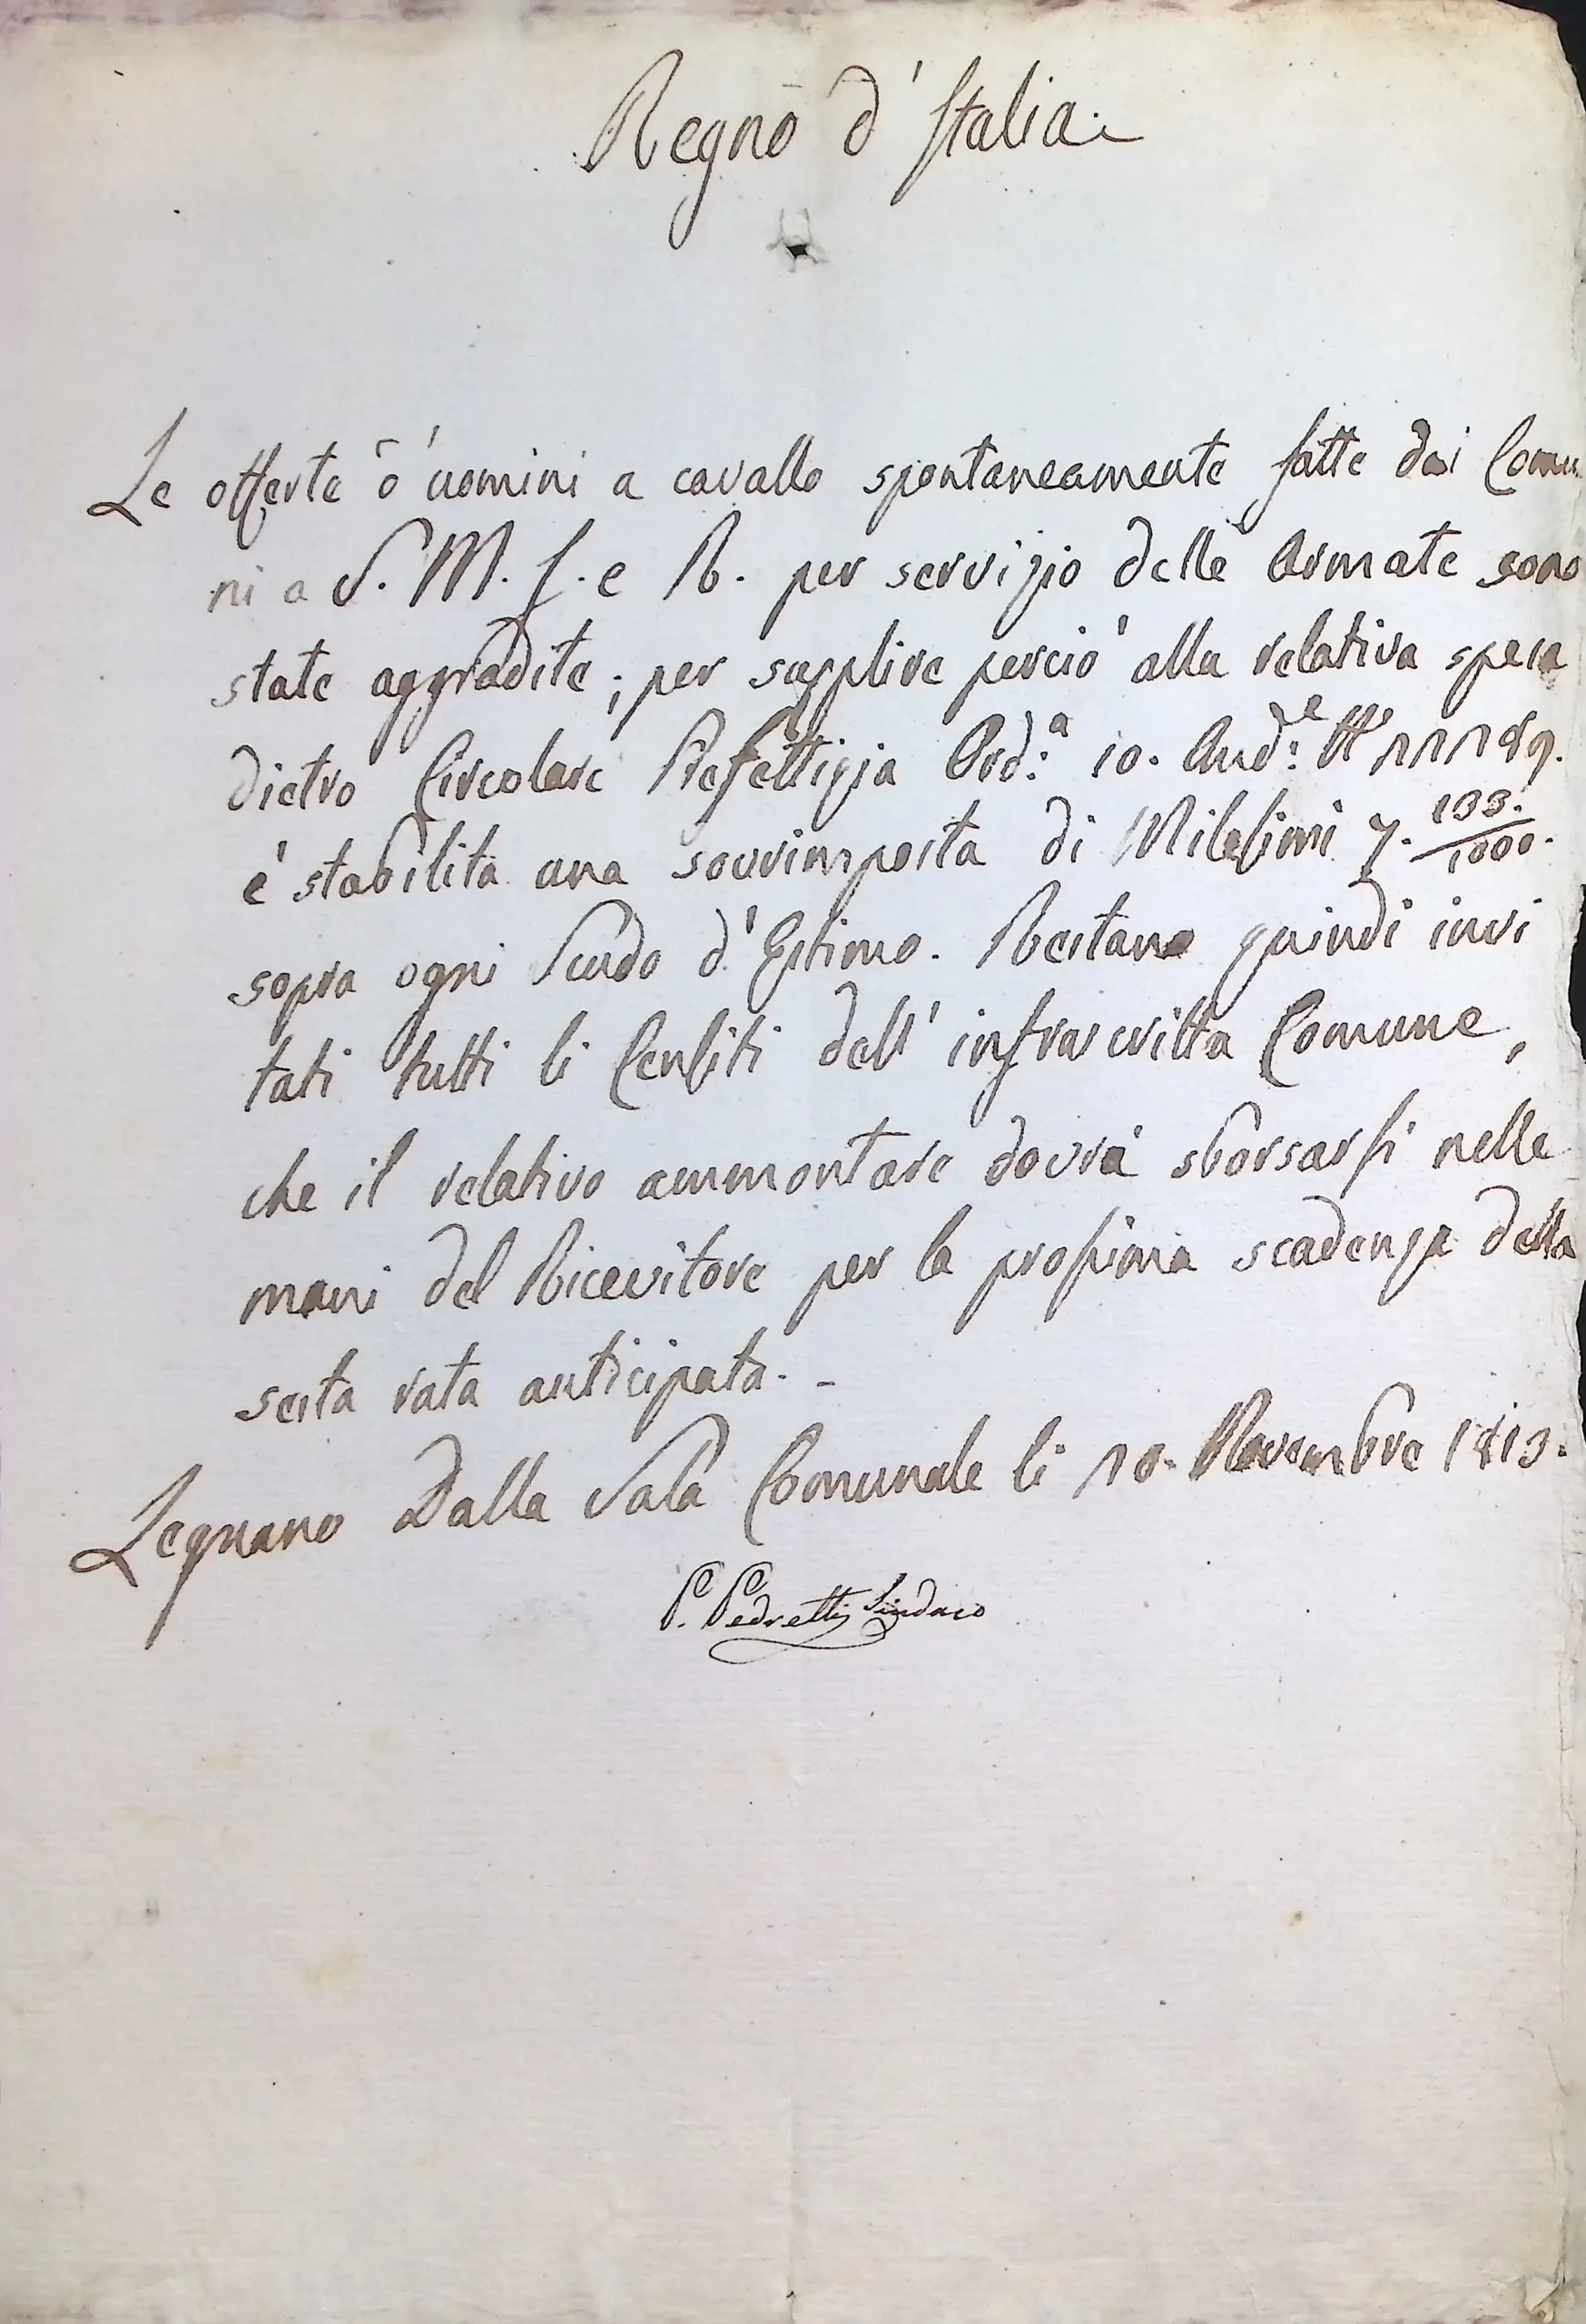 Regno d'Italia.
Le offerte d'uomini a cavallo spontaneamente fatte dai Comu
ni a S. M. I. e R. per servizio delle Armate sono
state aggradite; per supplire perciò alla relativa spesa
dietro Circolare Prefettizia Ord.ª 10. And.e
è stabilita una sovrimposta di Milesimi 7. 133./1000.
sopra ogni Scudo d'Estimo. Restano quindi invi
tati tutti li Censiti dell'infrascritta Comune,
che il relativo ammontare dovrà sborsarsi nelle
mani del Ricevitore per la prossima scadenza della
sesta rata anticipata. -
Legnano Dalla Sala Comunale li 18. Novembre 1813.
P. Pedretti Sindaco